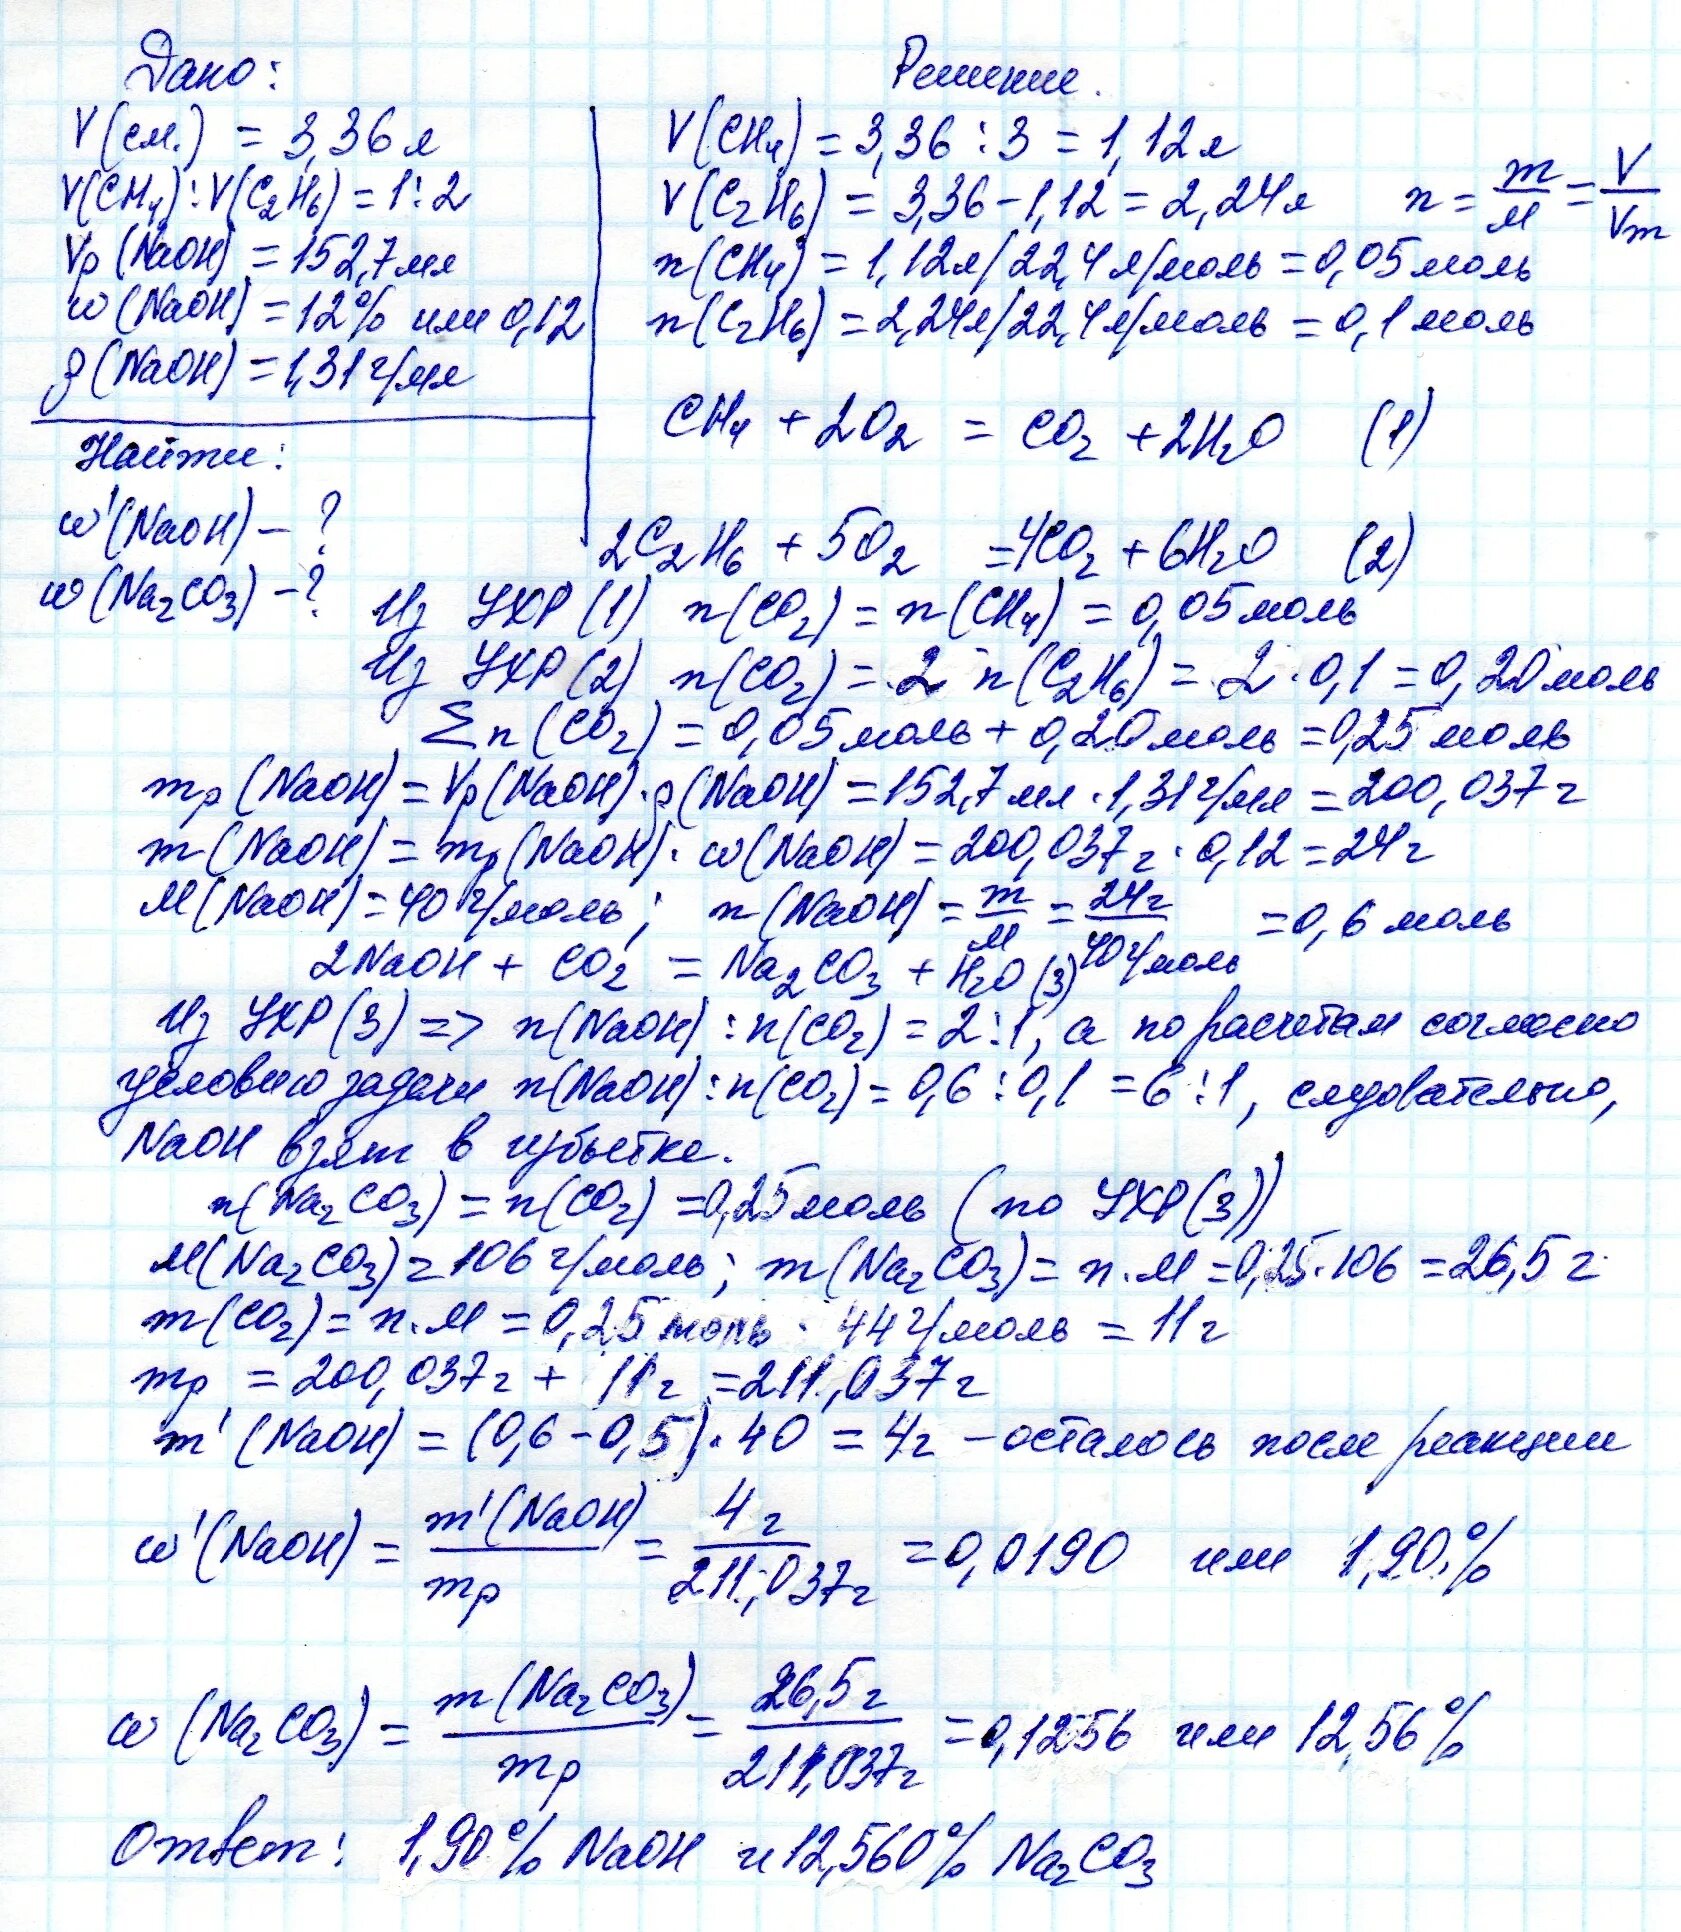 Дано:
V(см.) = 3,36 л
V(CH4):V(C2H6) = 1:2
Vр(NaOH) = 152,7 мл
w(NaOH) = 12% или 0,12
ρ(NaOH) = 1,31 г/мл
Найти:
w'(NaOH) – ?
w(Na2CO3) – ?
Решение.
V(CH4) = 3,36 : 3 = 1,12 л
V(C2H6) = 3,36 – 1,12 = 2,24 л n = m/M = V/Vm
n(CH4) = 1,12 л/22,4 л/моль = 0,05 моль
n(C2H6) = 2,24 л/22,4 л/моль = 0,1 моль
CH4 + 2O2 = CO2 + 2H2O (1)
2C2H6 + 5O2 = 4CO2 + 6H2O (2)
Из УХР(1) n(CO2) = n(CH4) = 0,05 моль
Из УХР(2) n(CO2) = 2 n(C2H6) = 2 · 0,1 = 0,20 моль
Σn(CO2) = 0,05 моль + 0,20 моль = 0,25 моль
mр(NaOH) = Vр(NaOH)·ρ(NaOH) = 152,7 мл · 1,31 г/мл = 200,037 г
m(NaOH) = mр(NaOH) · w(NaOH) = 200,037 г · 0,12 = 24 г
M(NaOH) = 40 г/моль; n(NaOH) = m/M = 24 г/40 г/моль = 0,6 моль
2NaOH + CO2 = Na2CO3 + H2O (3)
Из УХР(3) => n(NaOH) : n(CO2) = 2:1, а по расчетам согласно
условию задачи n(NaOH):n(CO2) = 0,6 : 0,1 = 6 : 1, следовательно,
NaOH взят в избытке.
n(Na2CO3) = n(CO2) = 0,25 моль (по УХР(3))
M(Na2CO3) = 106 г/моль; m(Na2CO3) = n·M = 0,25·106 = 26,5 г
m(CO2) = n·M = 0,25 моль · 44 г/моль = 11 г
mр = 200,037 г + 11 г = 211,037 г
m'(NaOH) = (0,6 – 0,5)·40 = 4 г – осталось после реакции
w'(NaOH) = m'(NaOH)/mр = 4 г/211,037 г = 0,0190 или 1,90%
w(Na2CO3) = m(Na2CO3)/mр = 26,5 г/211,037 г = 0,1256 или 12,56%
Ответ: 1,90% NaOH и 12,560% Na2CO3